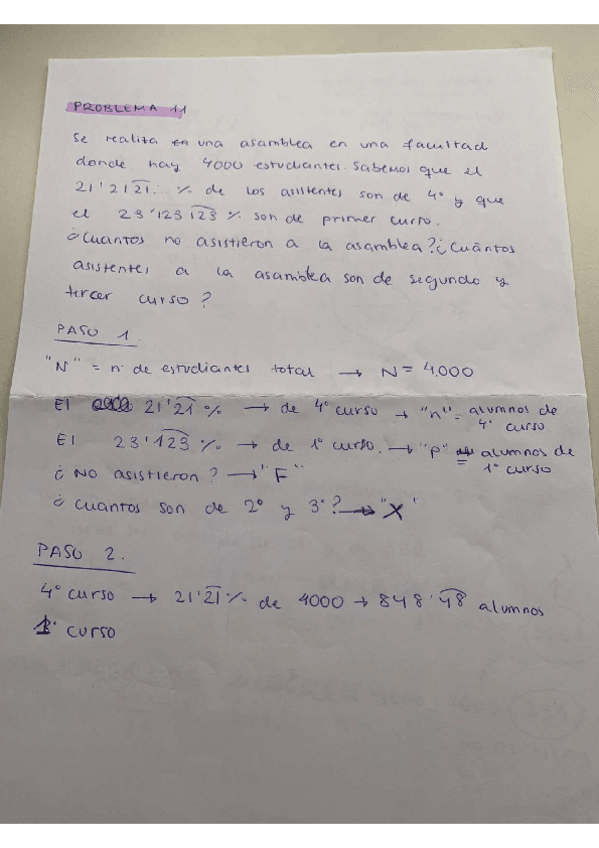 PROBLEMA 11
Se realiza en una asamblea en una facultad
donde hay 4000 estudiantes. Sabemos que el
21'2121... % de los asistentes son de 4º y que
el 23'123123 % son de primer curso.
¿Cuantos no asistieron a la asamblea? ¿Cuántos
asistentes a la asamblea son de segundo y
tercer curso?
PASO 1.
"N" = nº de estudiantes total → N = 4.000
El 21'21 % → de 4º curso → "n" = alumnos de
4º curso
El 23'123 % → de 1º curso. → "p" = alumnos de
1º curso
¿ NO asistieron? → "F"
¿ Cuantos son de 2º y 3º? → "X"
PASO 2.
4º curso → 21'21 % de 4000 → 848'48 alumnos
1º curso